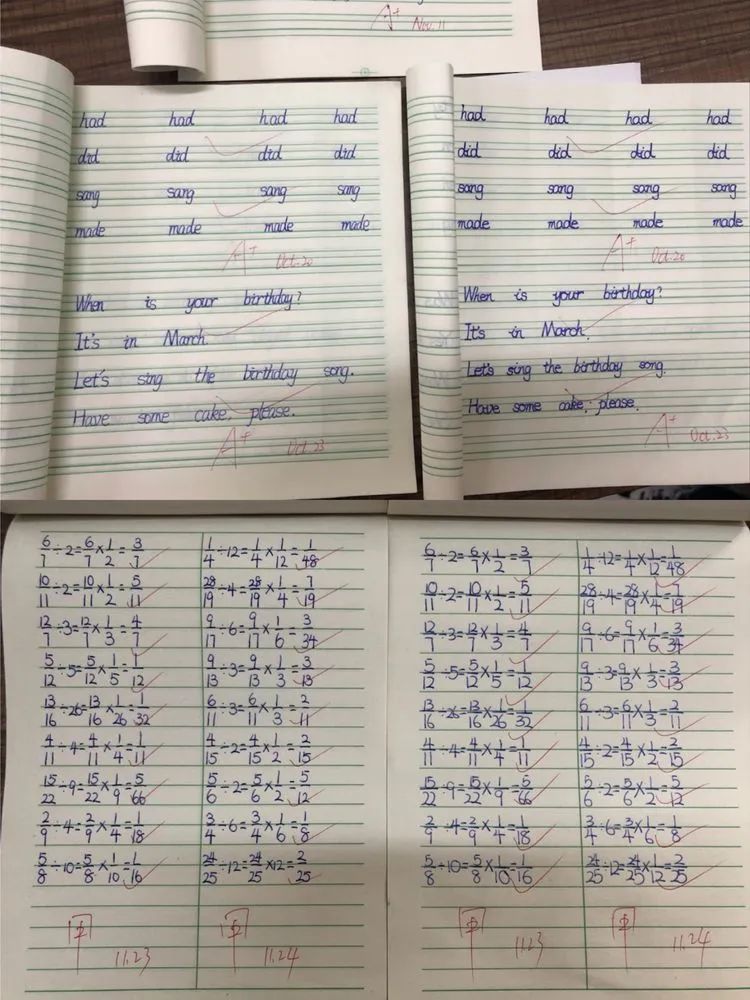 A+ Nov. 11
had had had had
did did did did
sang sang sang sang
made made made made
A+ Oct. 20
When is your birthday?
It's in March.
Let's sing the birthday song.
Have some cake, please.
A+ Oct. 23
had had had had
did did did did
sang sang sang sang
made made made made
A+ Oct. 20
When is your birthday?
It's in March.
Let's sing the birthday song.
Have some cake, please.
A+ Oct. 23
6/7÷2=6/7×1/2=3/7
10/11÷2=10/11×1/2=5/11
12/7÷3=12/7×1/3=4/7
5/12÷5=5/12×1/5=1/12
13/16÷26=13/16×1/26=1/32
4/11÷4=4/11×1/4=1/11
15/22÷9=15/22×1/9=5/66
2/9÷4=2/9×1/4=1/18
5/8÷10=5/8×1/10=1/16
11.23
1/4÷12=1/4×1/12=1/48
28/19÷4=28/19×1/4=7/19
9/17÷6=9/17×1/6=3/34
9/13÷3=9/13×1/3=3/13
6/11÷3=6/11×1/3=2/11
4/15÷2=4/15×1/2=2/15
5/6÷2=5/6×1/2=5/12
3/4÷6=3/4×1/6=1/8
24/25÷12=24/25×12=2/25
11.24
6/7÷2=6/7×1/2=3/7
10/11÷2=10/11×1/2=5/11
12/7÷3=12/7×1/3=4/7
5/12÷5=5/12×1/5=1/12
13/16÷26=13/16×1/26=1/32
4/11÷4=4/11×1/4=1/11
15/22÷9=15/22×1/9=5/66
2/9÷4=2/9×1/4=1/18
5/8÷10=5/8×1/10=1/16
11.23
1/4÷12=1/4×1/12=1/48
28/19÷4=28/19×1/4=7/19
9/17÷6=9/17×1/6=3/34
9/13÷3=9/13×1/3=3/13
6/11÷3=6/11×1/3=2/11
4/15÷2=4/15×1/2=2/15
5/6÷2=5/6×1/2=5/12
3/4÷6=3/4×1/6=1/8
24/25÷12=24/25×1/12=2/25
11.24